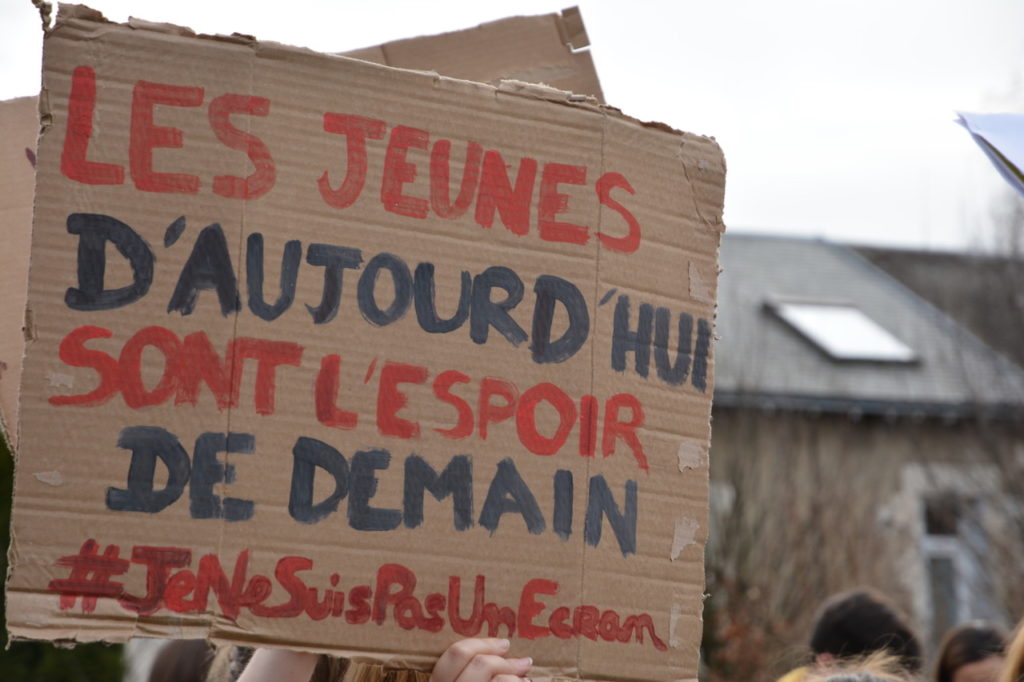 LES JEUNES
D'AUJOURD'HUI
SONT L'ESPOIR
DE DEMAIN
#JeNeSuisPasUnEcran